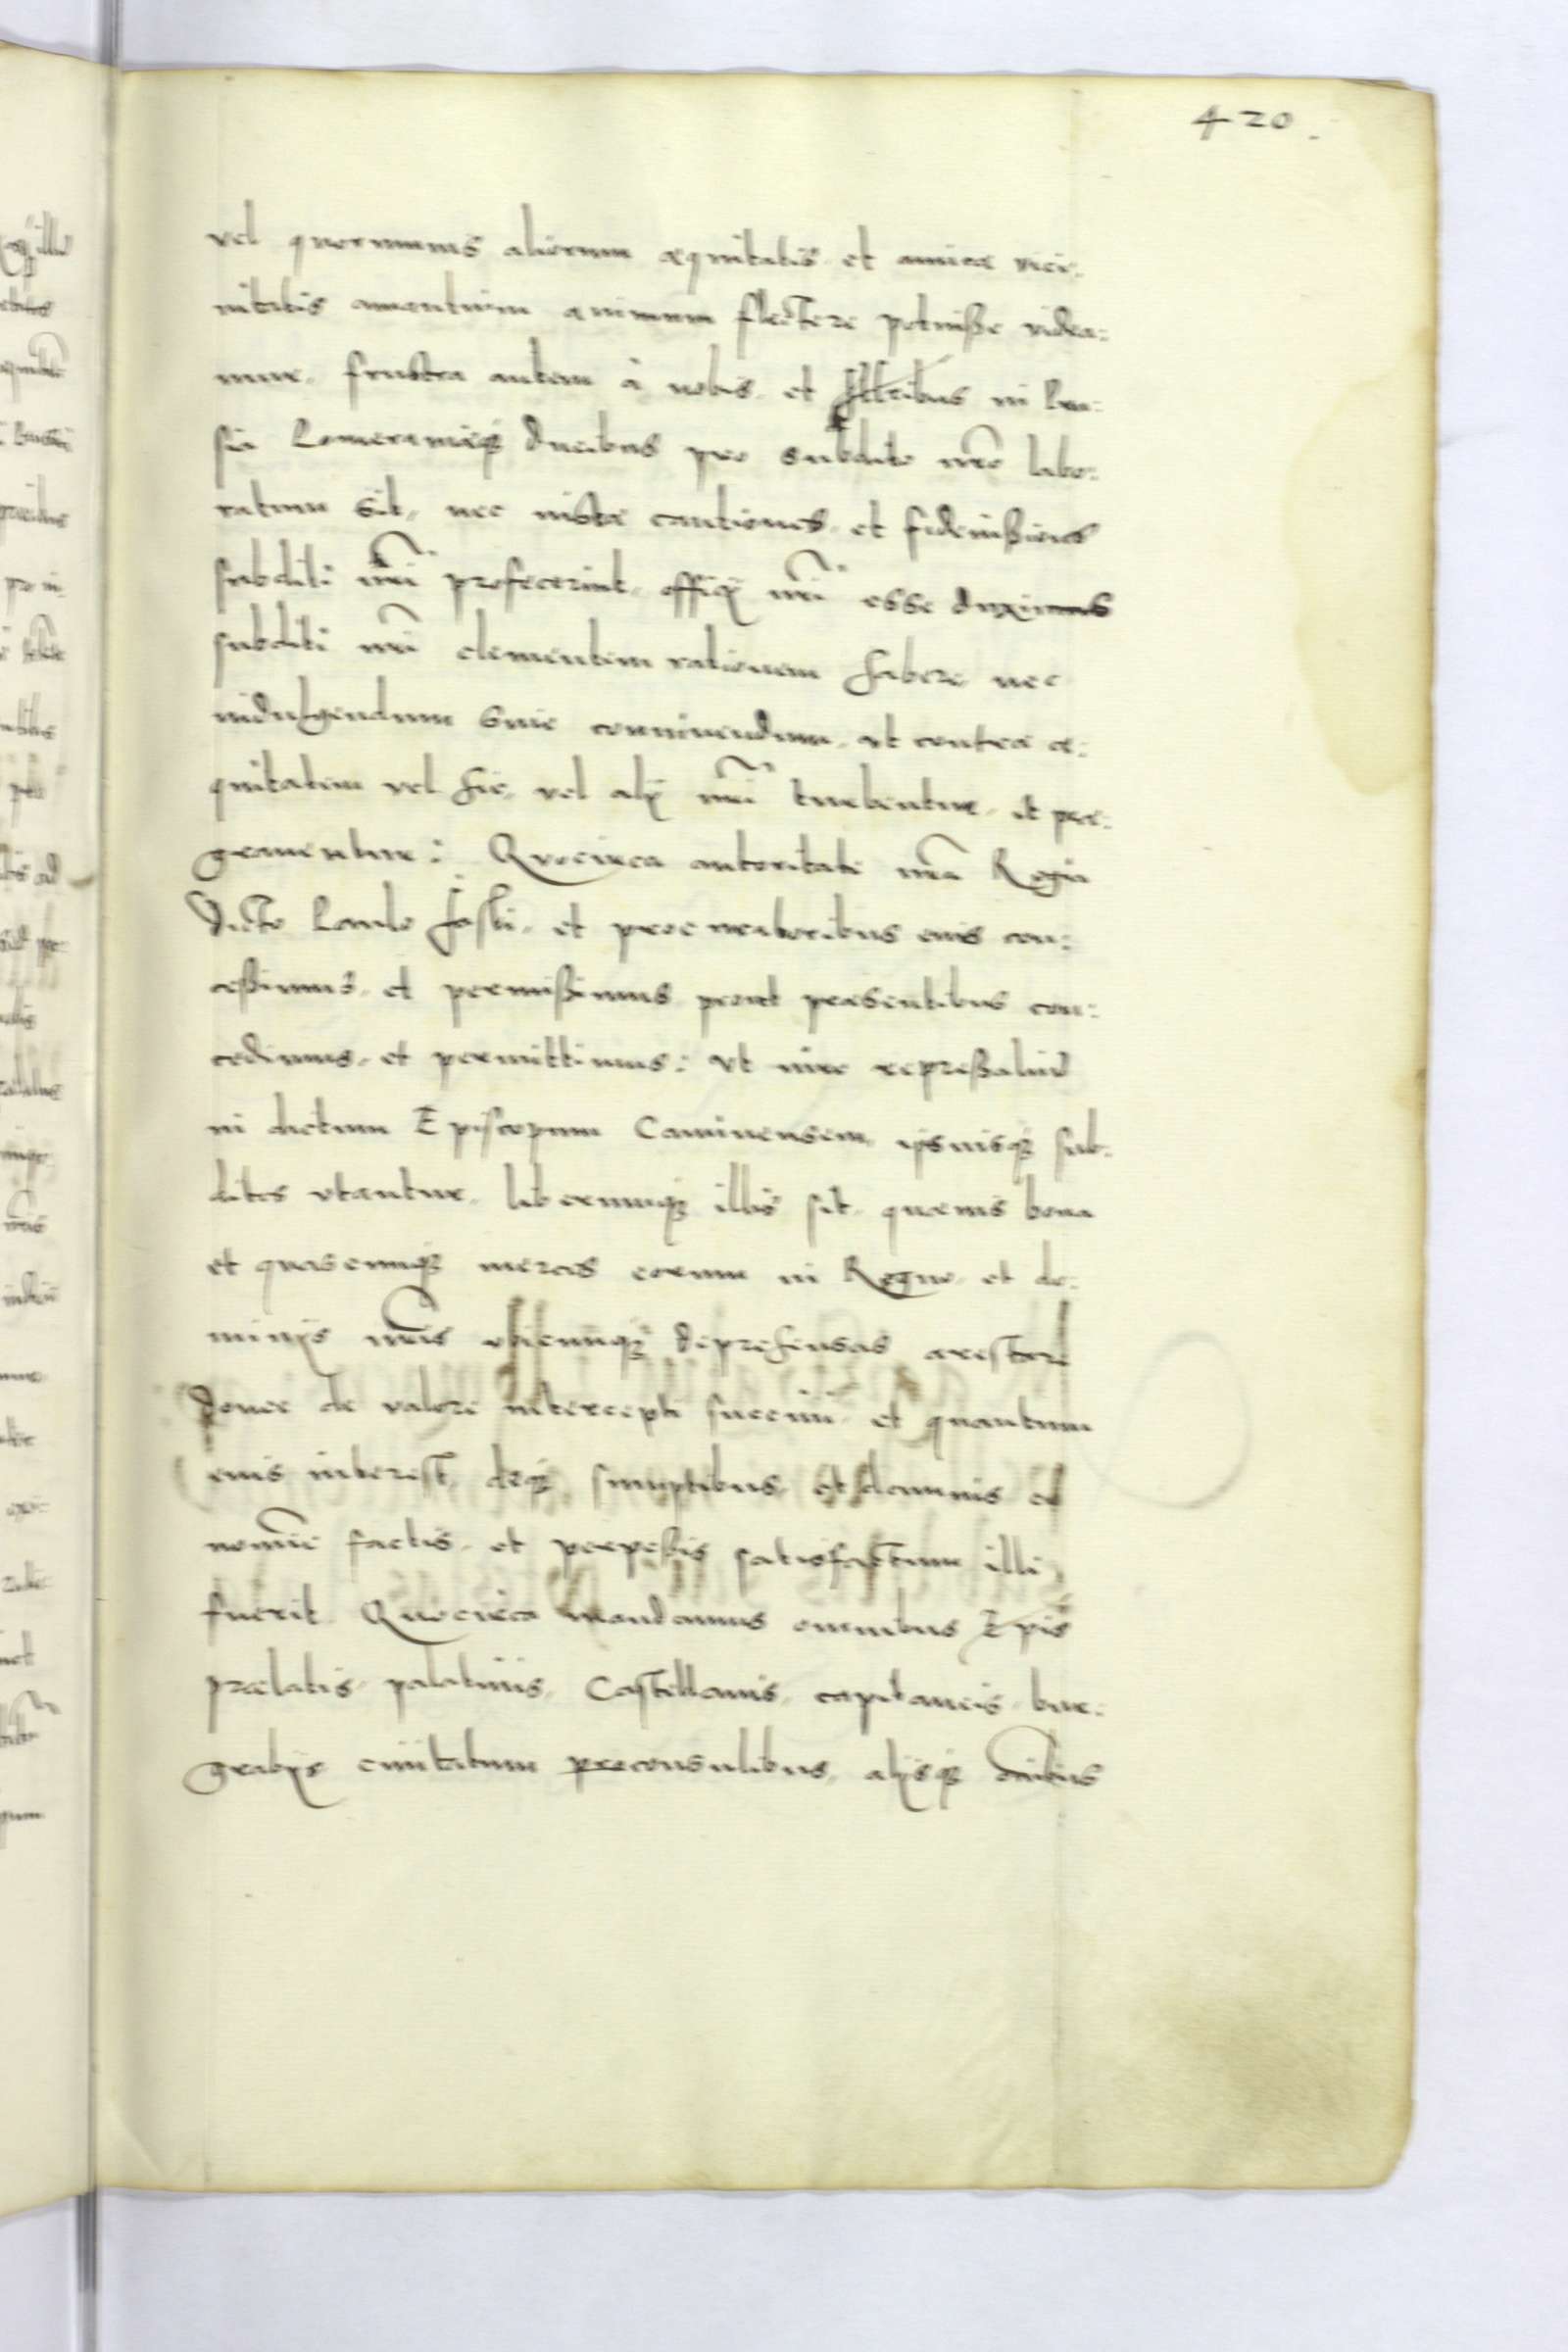 420.
vel quorumuis aliorum æquitatis et amicæ vici-
nitatis amantium animum flectere potuisse videa-
mur, frustra autem à nobis, et Illribus in Pru-
sia Pomeraniaq₃ Ducibus pro subdito nrō labo-
ratum sit, nec iustæ cautiones, et fideiussiones
subditi nrī profecerint, officij nrī esse duximus
subditi nrī clementem rationem habere, nec
indulgendum siue conniuendum, vt contra æ-
quitatem vel hic, vel alij nrī turbentur, et præ-
grauentur: Quocirca autoritate nrā Regia
Dicto Paulo Jaski, et procuratoribus eius con-
cessimus, et permissimus prout præsentibus con-
cedimus, et permittimus: Vt iure repressaliarū
in dictum Episcopum Caminensem, ipsiusq₃ sub-
ditos vtantur, liberumq₃ illis sit, quæuis bona
et quascunq₃ merces eorum in Regno, et do-
minijs nrīs vbicunq₃ deprehensas arestare
donec de valore intercepti succini, et quantum
eius interest, deq₃ sumptibus, et damnis eo
nomine factis, et perpessis satisfactum illi
fuerit. Quocirca mandamus omnibus Epis
prælatis, palatinis, Castellanis, capitaneis, bur-
grabijs ciuitatum proconsulibus, alijsq₃ omībus